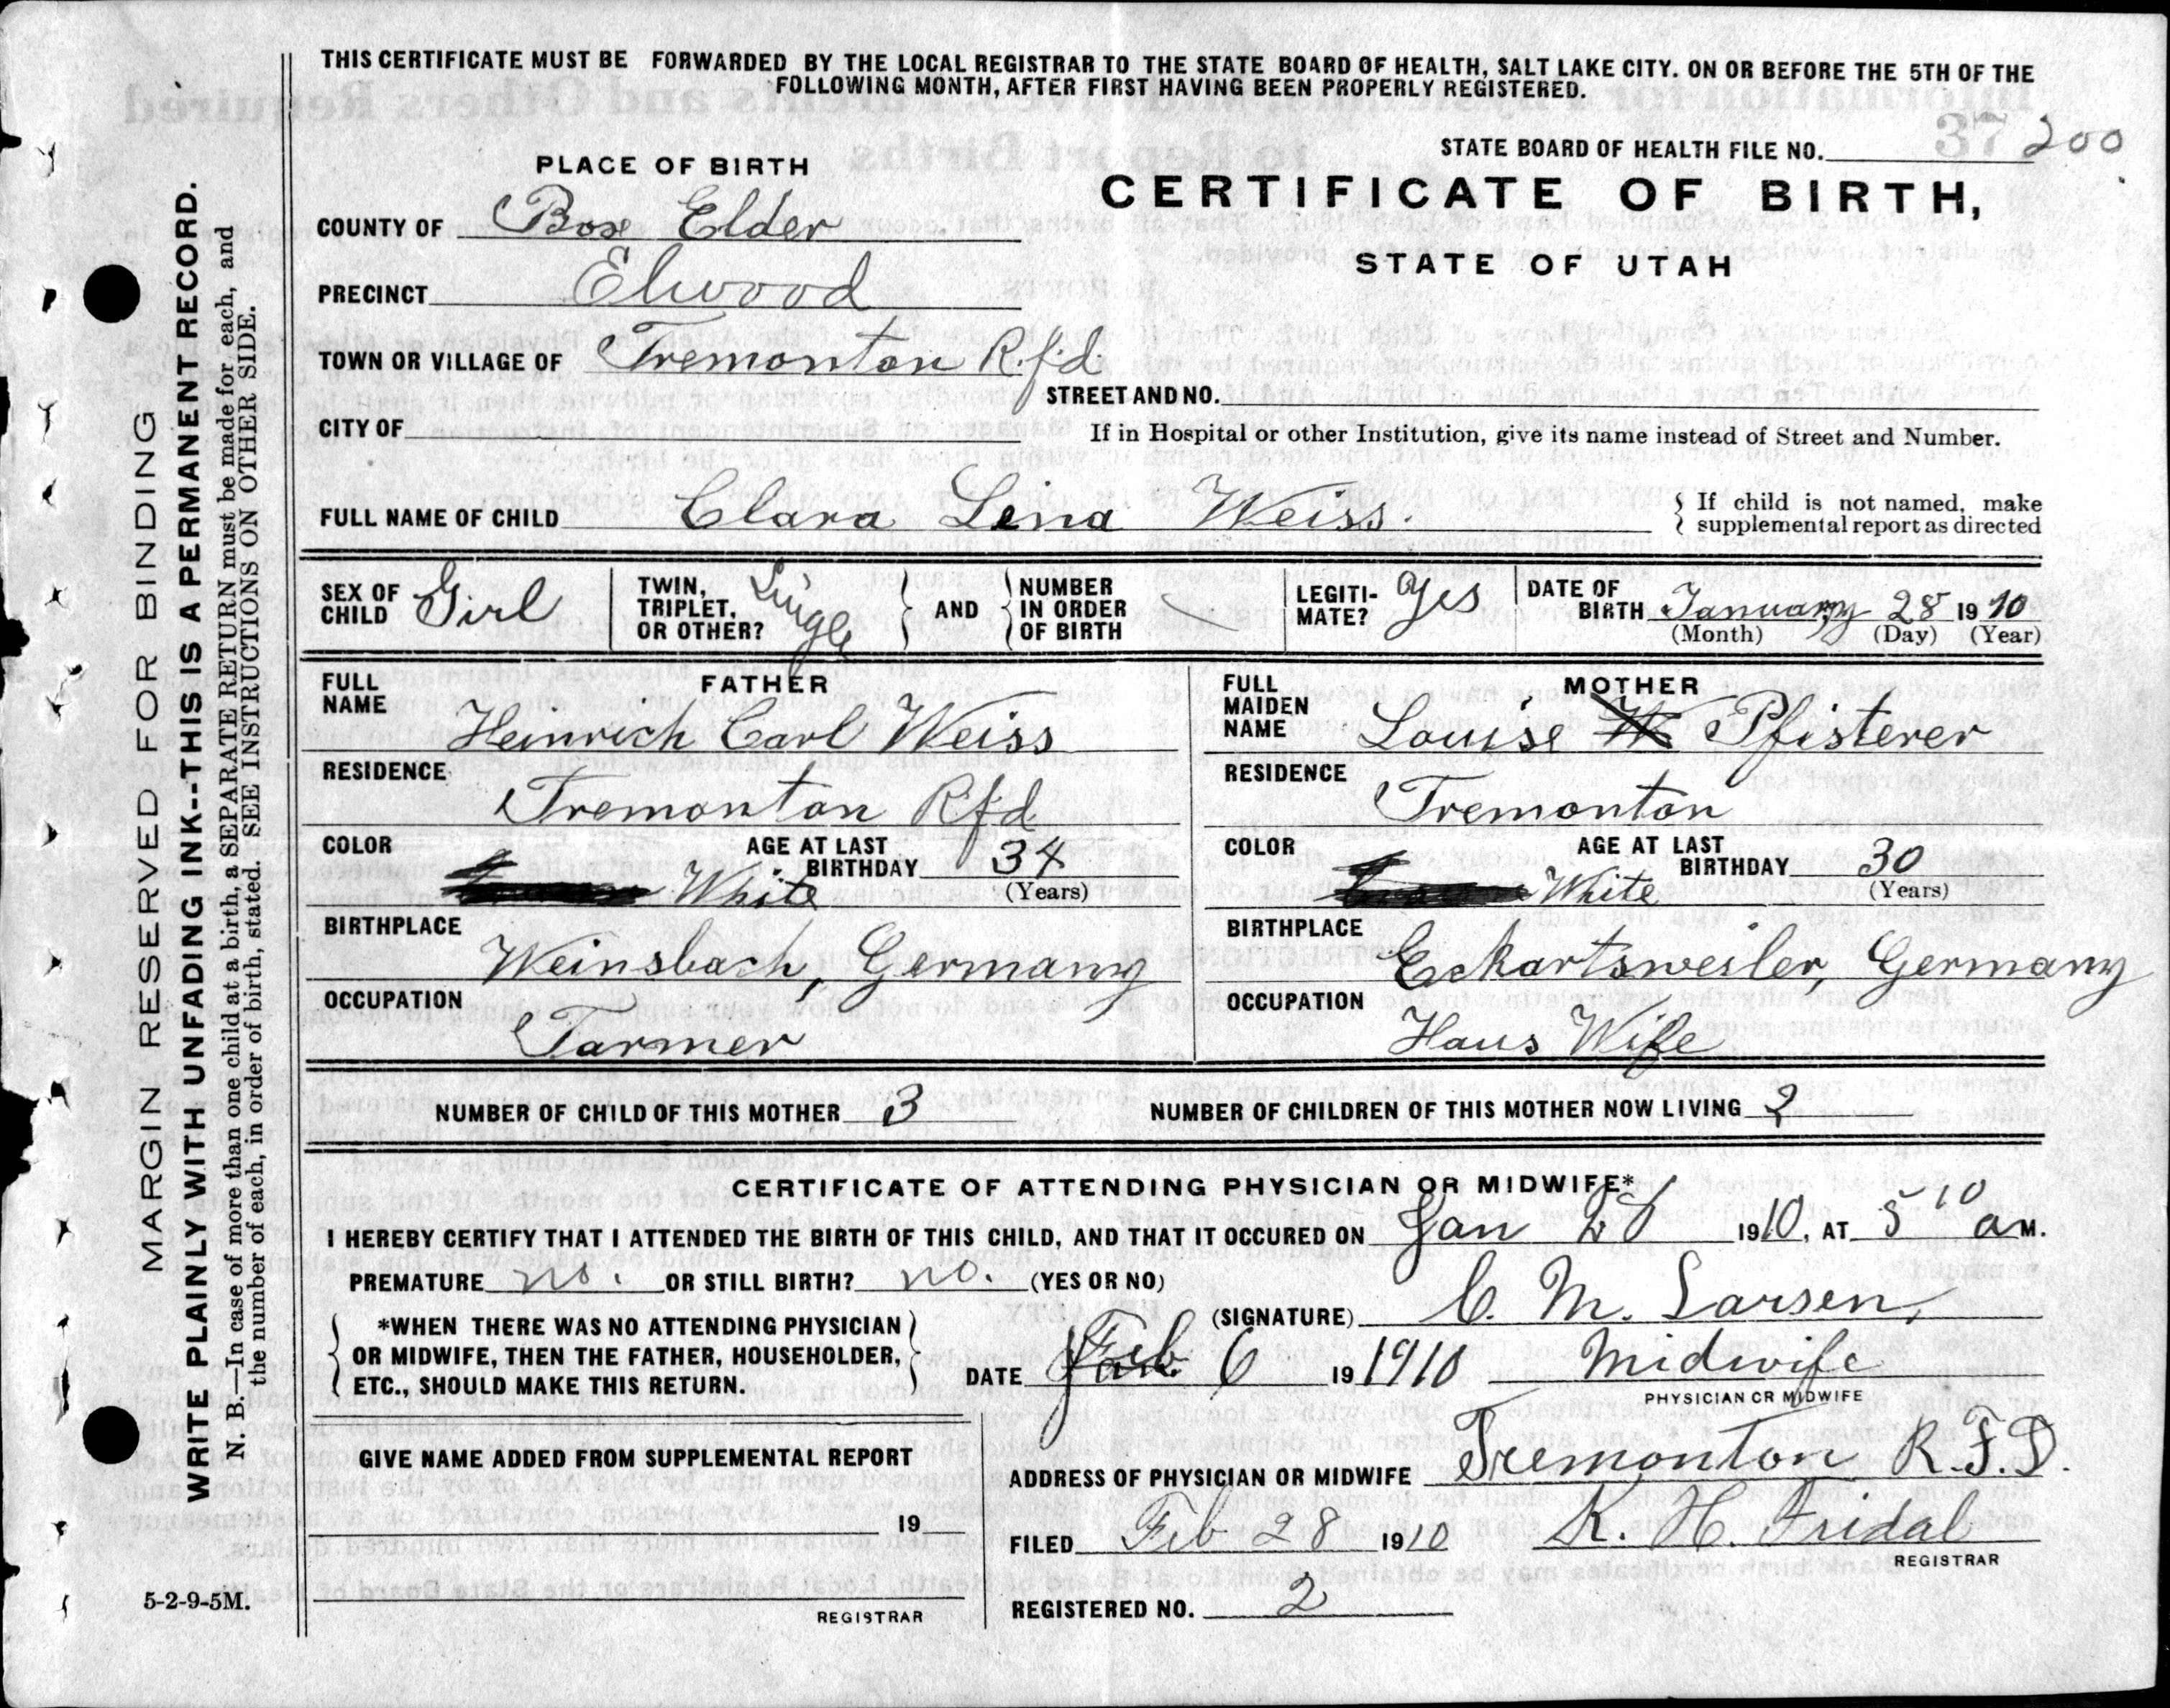 THIS CERTIFICATE MUST BE FORWARDED BY THE LOCAL REGISTRAR TO THE STATE BOARD OF HEALTH, SALT LAKE CITY. ON OR BEFORE THE 5TH OF THE
FOLLOWING MONTH, AFTER FIRST HAVING BEEN PROPERLY REGISTERED.
STATE BOARD OF HEALTH FILE NO. 37 200
PLACE OF BIRTH
CERTIFICATE OF BIRTH,
STATE OF UTAH
COUNTY OF Box Elder
PRECINCT Elwood
TOWN OR VILLAGE OF Tremonton R.f.d.
STREET AND NO.
CITY OF
If in Hospital or other Institution, give its name instead of Street and Number.
FULL NAME OF CHILD Clara Lina Weiss.
If child is not named, make
supplemental report as directed
SEX OF CHILD Girl
TWIN, TRIPLET, OR OTHER? Single
AND
NUMBER IN ORDER OF BIRTH
LEGITI-MATE? Yes
DATE OF BIRTH January 28 1910
(Month) (Day) (Year)
FATHER
FULL NAME Heinrich Carl Weiss
RESIDENCE Tremonton Rfd
COLOR White
AGE AT LAST BIRTHDAY 34
(Years)
BIRTHPLACE Weinsbach, Germany
OCCUPATION Farmer
MOTHER
FULL MAIDEN NAME Louise W Pfisterer
RESIDENCE Tremonton
COLOR White
AGE AT LAST BIRTHDAY 30
(Years)
BIRTHPLACE Eckartsweiler, Germany
OCCUPATION Haus Wife
NUMBER OF CHILD OF THIS MOTHER 3
NUMBER OF CHILDREN OF THIS MOTHER NOW LIVING 2
CERTIFICATE OF ATTENDING PHYSICIAN OR MIDWIFE*
I HEREBY CERTIFY THAT I ATTENDED THE BIRTH OF THIS CHILD, AND THAT IT OCCURED ON Jan 28 1910, AT 5 10 a M.
PREMATURE no. OR STILL BIRTH? no. (YES OR NO)
(SIGNATURE) C. M. Larsen,
*WHEN THERE WAS NO ATTENDING PHYSICIAN
OR MIDWIFE, THEN THE FATHER, HOUSEHOLDER,
ETC., SHOULD MAKE THIS RETURN.
DATE Feb. 6 19 1910 Midwife
PHYSICIAN OR MIDWIFE
GIVE NAME ADDED FROM SUPPLEMENTAL REPORT
19
REGISTRAR
ADDRESS OF PHYSICIAN OR MIDWIFE Tremonton R.F.D.
FILED Feb 28 1910 K. H. Fridal
REGISTRAR
REGISTERED NO. 2
5-2-9-5M.
MARGIN RESERVED FOR BINDING
WRITE PLAINLY WITH UNFADING INK--THIS IS A PERMANENT RECORD.
N. B.—In case of more than one child at a birth, a SEPARATE RETURN must be made for each, and
the number of each, in order of birth, stated. SEE INSTRUCTIONS ON OTHER SIDE.